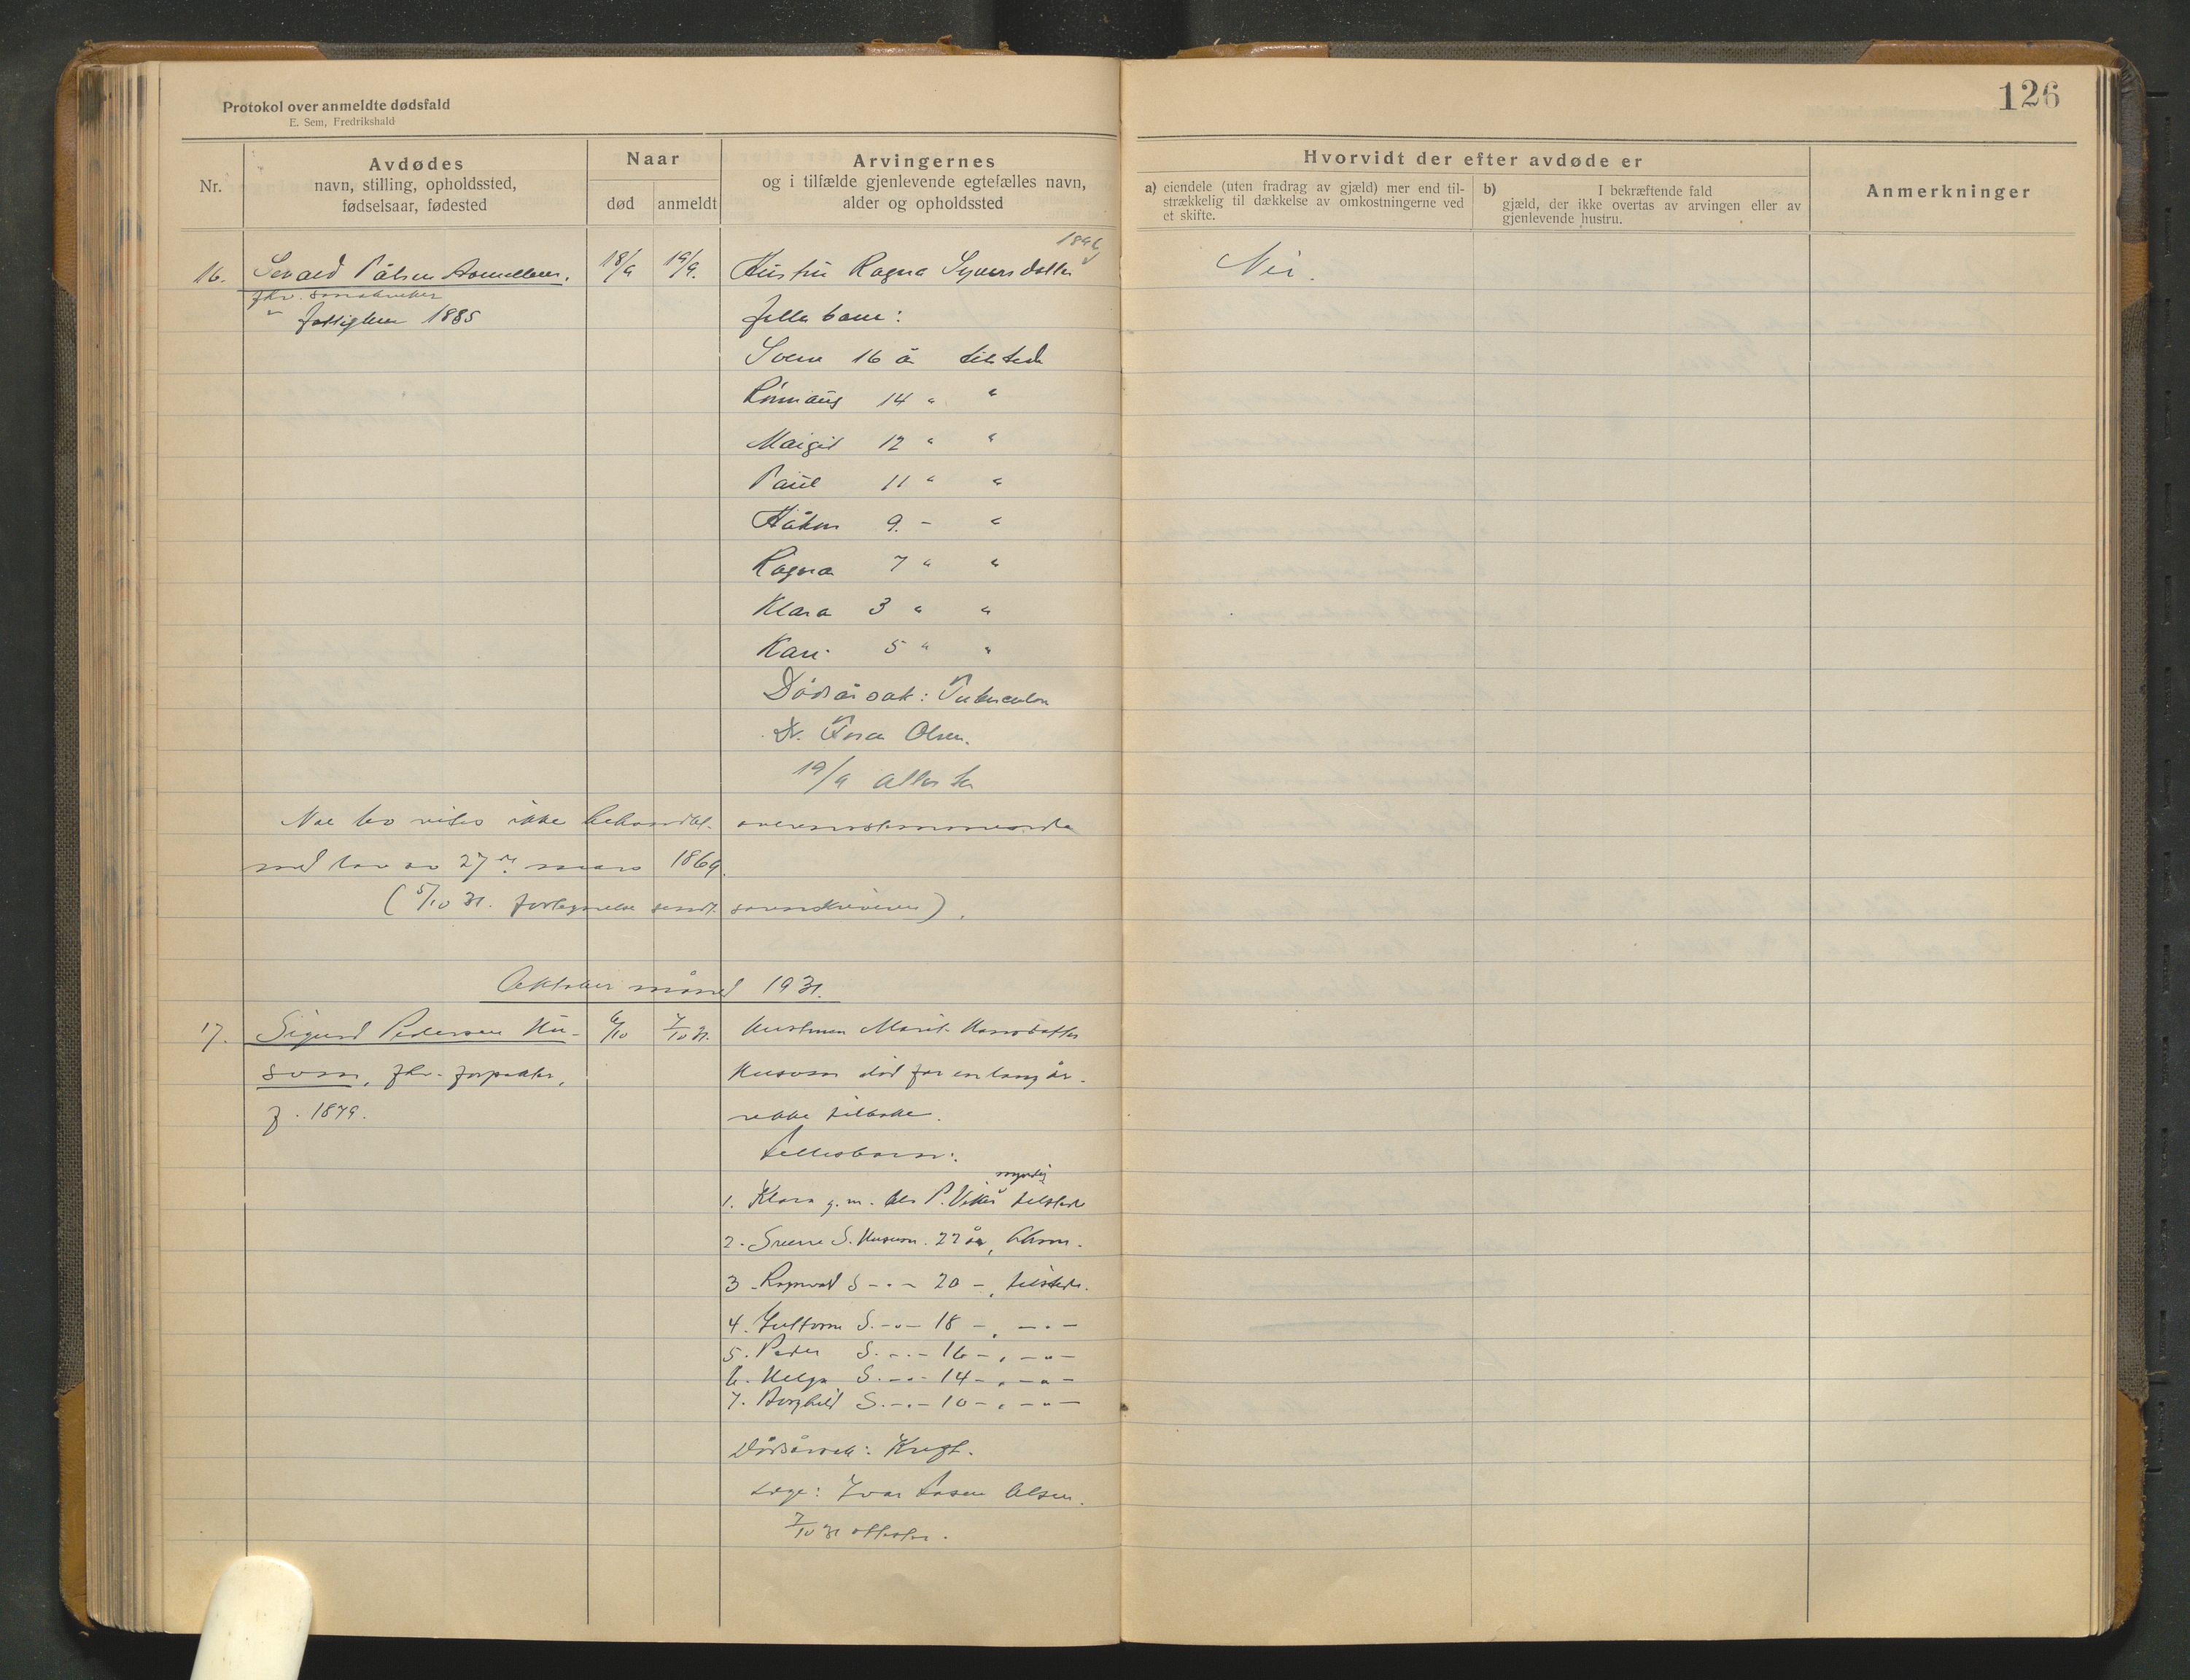 126
Protokol over anmeldte dødsfald
E. Sem, Fredrikshald
Nr.
Avdødes
navn, stilling, opholdssted,
fødselsaar, fødested
Naar
død
anmeldt
Arvingernes
og i tilfælde gjenlevende egtefælles navn,
alder og opholdssted
Hvorvidt der efter avdøde er
a) eiendele (uten fradrag av gjæld) mer end til-
strækkelig til dækkelse av omkostningerne ved
et skifte.
b) I bekræftende fald
gjæld, der ikke overtas av arvingen eller av
gjenlevende hustru.
Anmerkninger
16. Sevald Pålsen 18/9 19/9. Hustru Ragna Syversdatter Nei.
1885 fellesbarn:
16 år tilstede
14 " "
Margit 12 " "
Paul 11 " "
Håkon 9 - "
Ragna 7 " "
Klara 3 " "
Kari 5 " "
Dødsårsak: Tuberculose
Dr. Olsen.
19/9 attester
bo vites ikke behandlet overensstemmende
med lov av 27de mars 1869.
(5/10 31. fortegnelse sendt sorenskriveren).
Oktober måned 1931.
17. Sigurd Pedersen Hu- 6/10 7/10 31. Hustruen Marit Hansdatter
sum, fhv. forpakter, Husum død for en lang år-
f. 1879. rekke tilbake.
Fellesbarn:
myndig
1. Klara g.m. P. tilstede
2. Sverre S. Husum. 22 år,
3. Ragnvald S -"- 20 -, tilstede.
4. Guttorm S. -"- 18 -, -"-
5. Peder S. -"- 16 -, -"-
6. Helga S. -"- 14 -, -"-
7. Borghild S. -"- 10 -, -"-
Dødsårsak: Kreft.
Læge: Ivar Aasen Olsen.
7/10 31 attester.